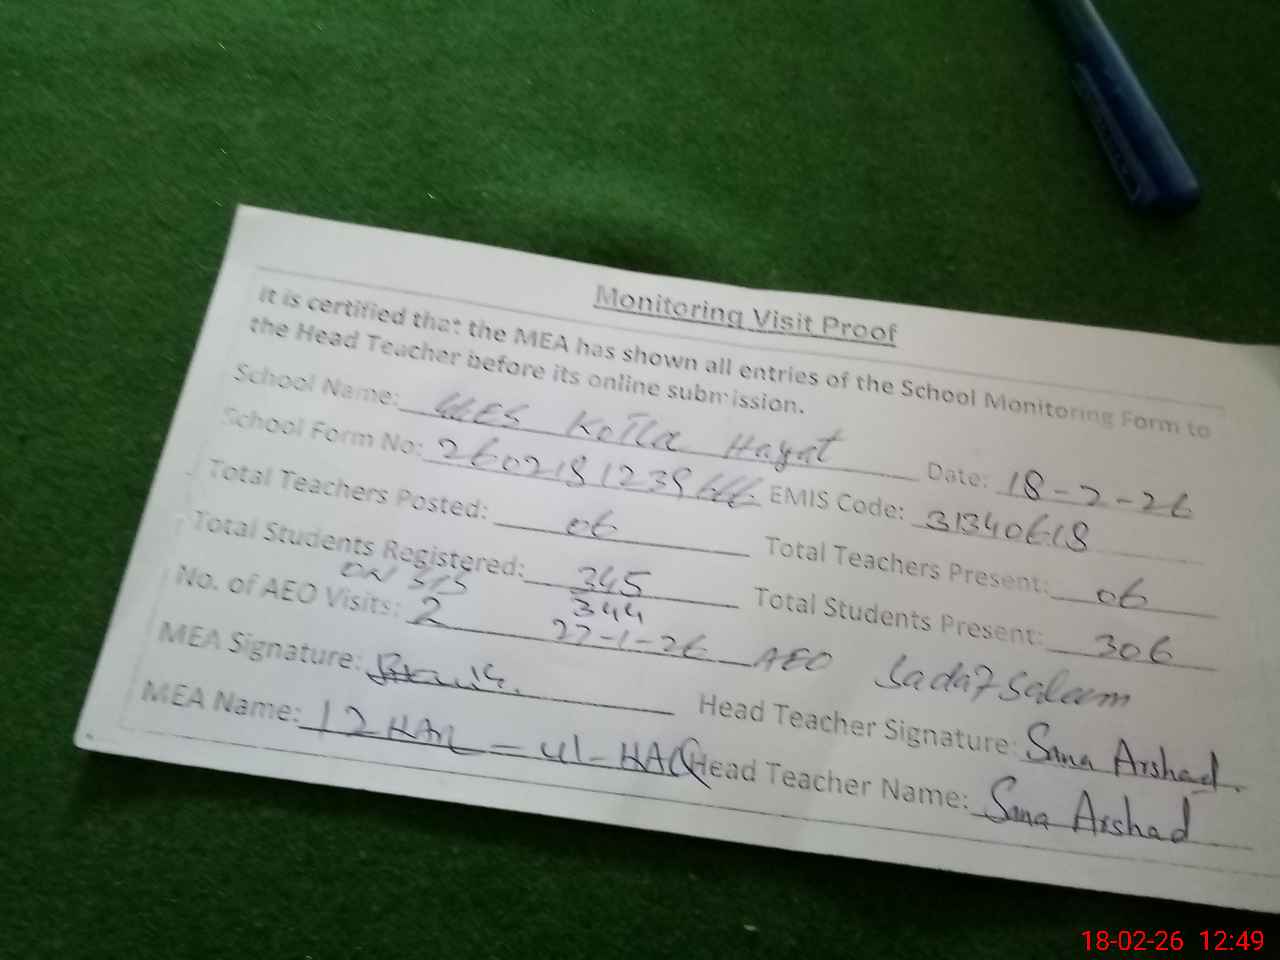 Monitoring Visit Proof
It is certified that the MEA has shown all entries of the School Monitoring Form to
the Head Teacher before its online submission.
School Name: Kotla Hayat Date: 18-2-26
School Form No: EMIS Code: 31340618
Total Teachers Posted: 06 Total Teachers Present: 06
Total Students Registered: 345 Total Students Present: 306
ON SIS 344
No. of AEO Visits: 2 22-1-26 AEO Sadaf Saleem
MEA Signature: Head Teacher Signature: Sana Arshad
MEA Name: IZHAR-Ul-HAQ Head Teacher Name: Sana Arshad
18-02-26 12:49